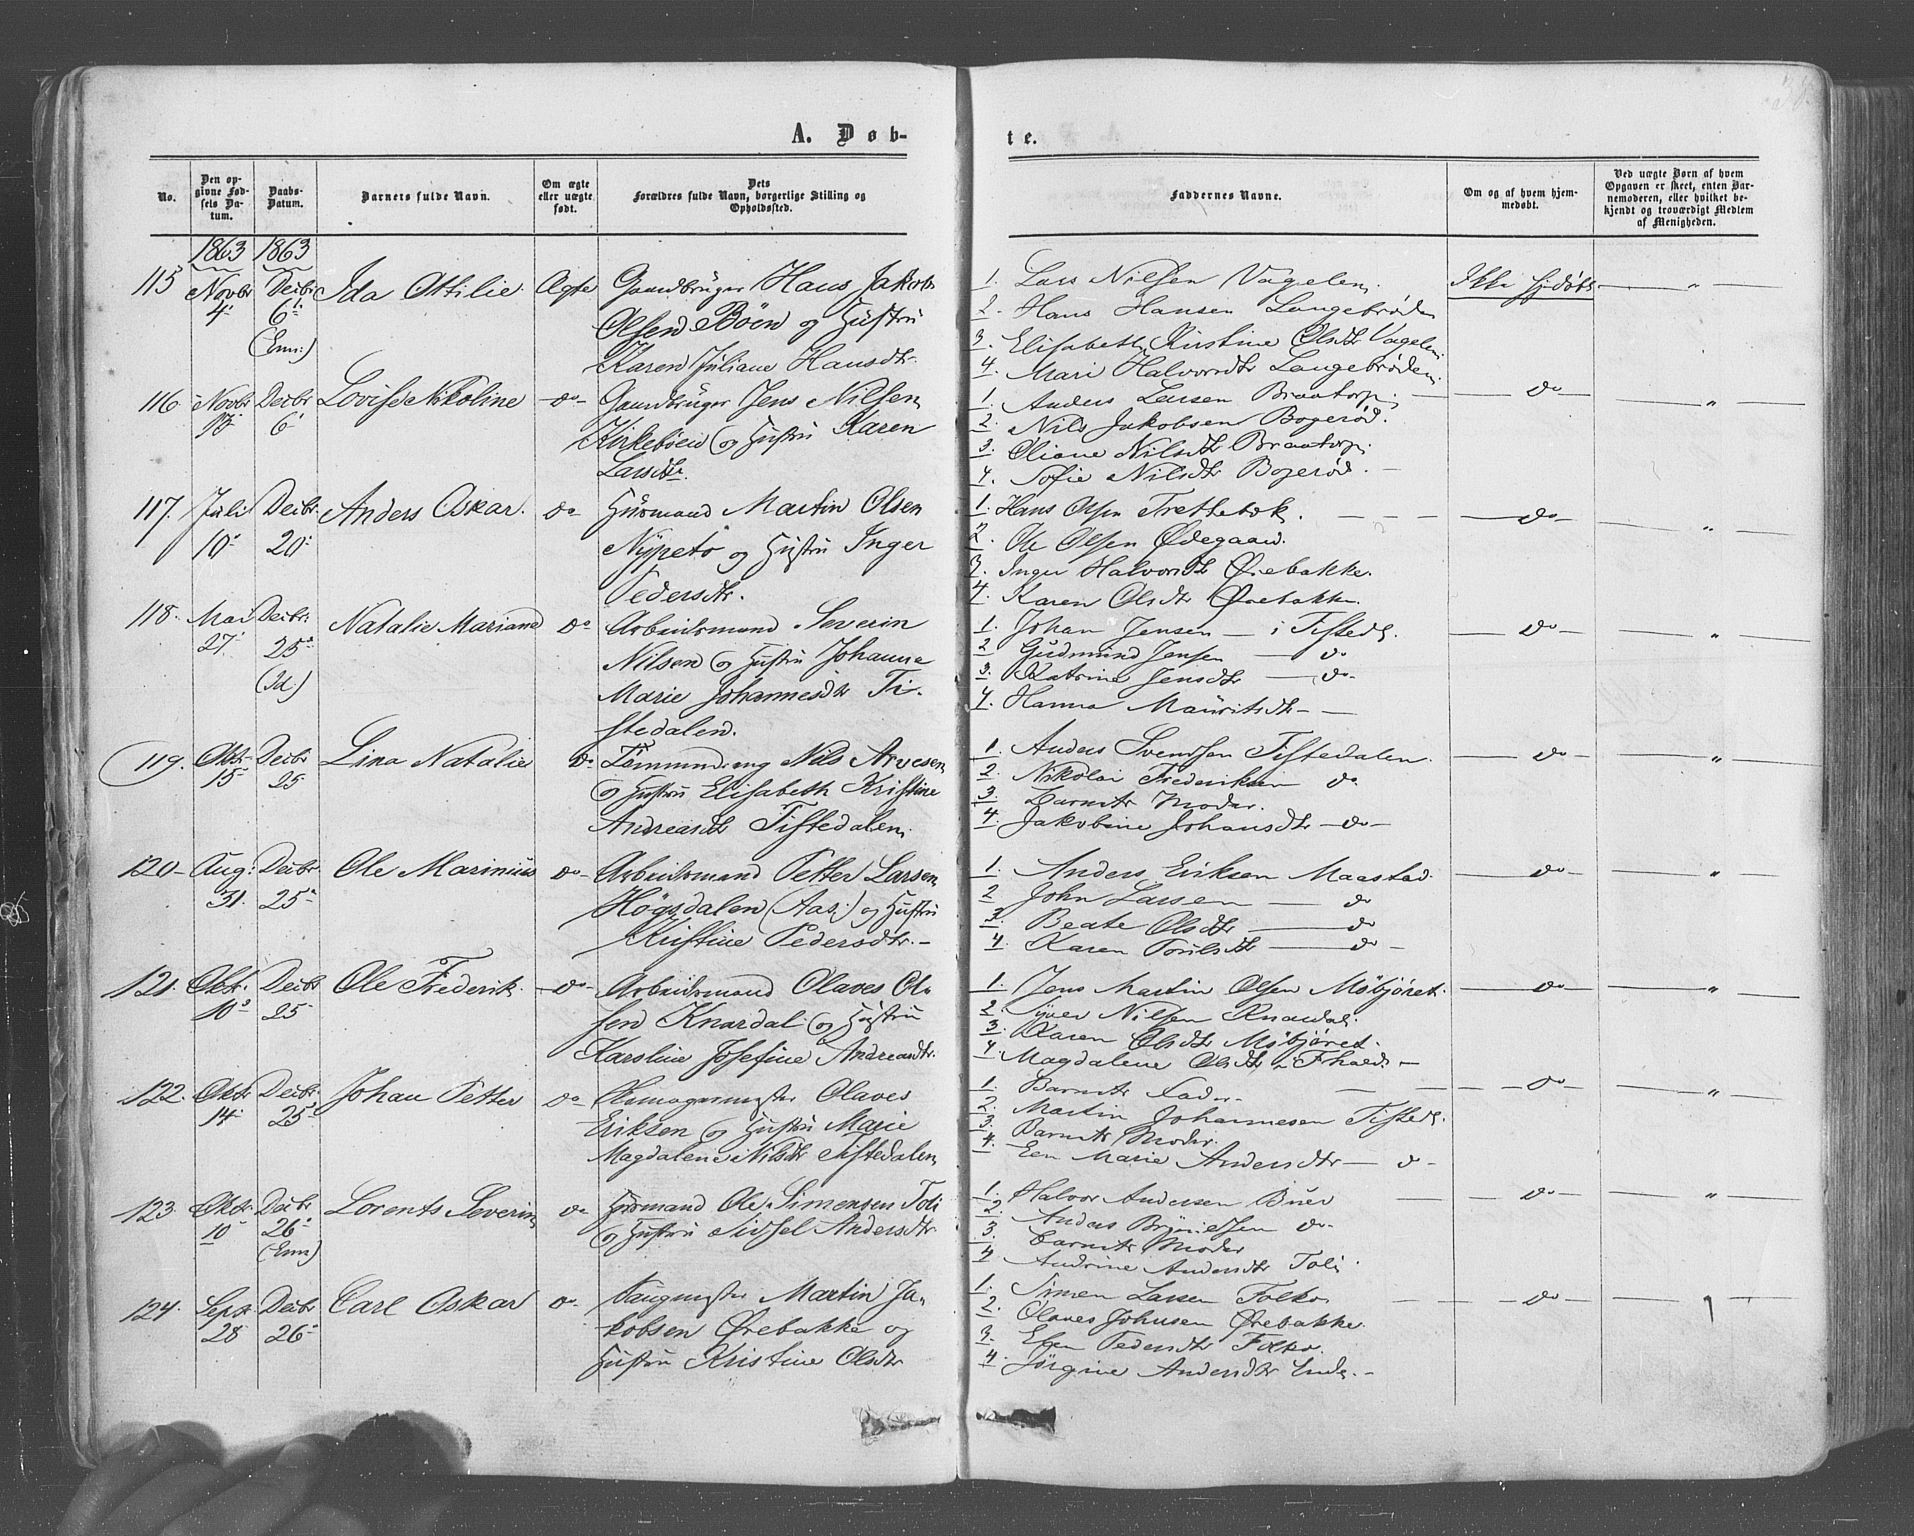 A. Døb-
te.
No.
Den op-
givne Fød-
sels Da-
tum.
Daabs-
Datum.
Barnets fulde Navn.
Om ægte
eller uægte
født.
Dets
Forældres fulde Navn, borgerlige Stilling og
Opholdssted.
Faddernes Navne.
Om og af hvem hjem-
medøbt.
Ved uægte Børn af hvem
Opgaven er skeet, enten Bar-
nemoderen, eller hvilket be-
kjendt og troværdigt Medlem
af Menigheden.
1863 1863
115 Novbr 4. Decbr 6te (Enn:) Ida Ottilie Ægte
Gaardbruger Hans Jakob
Olsen Böen og Hustru
Karen Juliane Hansdtr
1. Lars Nilsen Vagelen
2. Hans Hansen Langebrøden
3. Elisabeth Kirstine Olsdtr Vagelen
4. Mari Halvorsdtr Langebrøden
Ikke hjdøbt — " —
116 Novbr Decbr 6 Lovise Nikoline — do —
Gaardbruger Jens Nilsen
Kirkebøen og Hustru Karen
Larsdtr.
1. Anders Larsen Braatorp
2. Nils Jakobsen Bogerød.
3. Oliane Nilsdtr Braatorp
4. Sofie Nilsdtr Bogerød. —
do — " —
117. Juli 10 Decbr 20. Anders Oskar. do
Husmand Martin Olsen
Nypeto og Hustru Inger
Pedersdtr.
1. Hans Olsen Trettebak.
2. Ole Olsen Ødegaard.
3. Inger Halvorsdtr Ørebakke.
4. Karen Olsdtr Ørebakke.
do — " —
118. Mai 27. Decbr. 25 (Id.) Natalie Mariane do
Arbeidsmand Severin
Nilsen og Hustru Johanne
Marie Johannesdtr Ti-
stedalen.
1. Johan Jensen — i Tistedl.
2 Gudmund Jensen — do
3. Katrine Jensdtr — do —
4. Hanna Mauritsdtr — —
do — " —
119. Oktr 15 Decbr 25 Lina Natalie do
Tømmundring Nils Arvesen
og Hustru Elisabeth Kristine
Andreasdtr Tistedalen
1. Anders Svendsen Tistedalen
2. Nikolai Frederiksen do
3. Barnets Moder.
4. Jakobine Johansdtr — do —
do — " —
120 — Aug: 31. Decbr 25 Ole Marinius do —
Arbeidsmand Petter Larsen
Høgsdalen (Aas;) og Hustru
Kristine Pedersdtr. —
1. Anders Eriksen Maastad
2 John Larsen — do
3. Beate Olsdtr — do
4. Karen Poulsdtr — do —
do — " —
121. Oktr. 10 Decbr 25 Ole Frederik. — do —
Arbeidsmand Olaves Ol-
sen Knardal og Hustru
Karoline Josefine Andreasdtr.
1. Jens Martin Olsen Møbjøret
2. Syver Nilsen Knardal
3. Karen Olsdtr Møbjøret.
4. Magdalene Olsdtr
do — " —
122. Oktr 14. Decbr 25 Johan Petter do
Olaves
Eriksen og Hustru Marie
Magdalene Nilsdtr Tistedalen
1. Barnets Fader.
2. Martin Johannesen Tistedl.
3. Barnets Moder.
4. Marie Andersdtr — do —
do — " —
123 Oktr. 10 Decbr 26 (Enn) Lorents Severin do
Husmand Ole Simensen Toli
og Hustru Sissel Andersdtr
1. Halvor Andersen Buer
2. Anders Brynielsen do.
3. Barnets Moder
4 Andrine Andersdtr Toli.
do — " —
124. Septr. 28 Decbr 26 Carl Oskar do
Martin Ja-
kobsen Ørebakke og
Hustru Kristine Olsdtr
1. Simen Larsen Folko
2. Olaves Johnsen Ørebakke
3. Elen Pedersdtr Folko.
4. Jørgine Andersdtr
do —